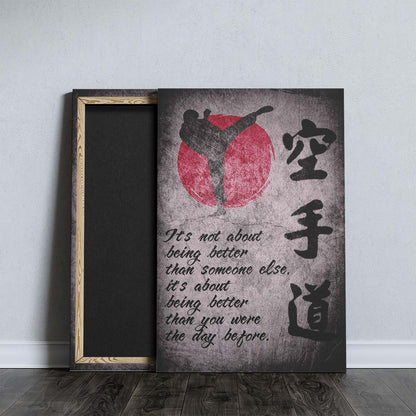 It's not about
being better
than someone else,
it's about
being better
than you were
the day before.
空手道